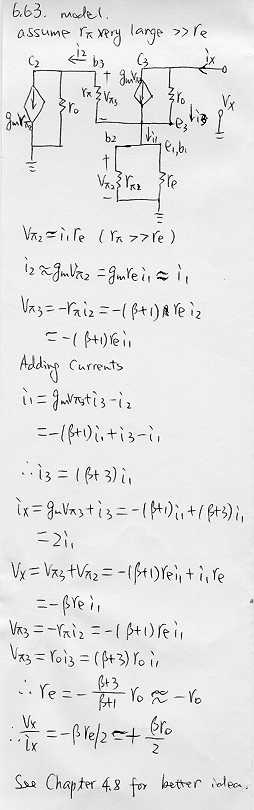 6.63. model.
assume rπ very large >> re
C2 i2 b3 C3 ix
gmVπ2 ro rπ + Vπ3 - gmVπ3 ro
e3 i3 Vx
b2 i1 e1,b1
+ Vπ2 - rπ2 re
Vπ2 ≈ i1re (rπ >> re)
i2 ≈ gmVπ2 = gmrei1 ≈ i1
Vπ3 = -rπi2 = -(β+1)rei2
= -(β+1)rei1
Adding Currents
i1 = gmVπ3+i3-i2
= -(β+1)i1+i3-i1
∴ i3 = (β+3)i1
ix = gmVπ3+i3 = -(β+1)i1+(β+3)i1
= 2i1
Vx = Vπ3+Vπ2 = -(β+1)rei1+i1re
= -βrei1
Vπ3 = -rπi2 = -(β+1)rei1
Vπ3 = roi3 = (β+3)roi1
∴ re = - (β+3)/(β+1) ro ≈ -ro
∴ Vx/ix = -βre/2 = + βro/2
See Chapter 4.8 for better idea.